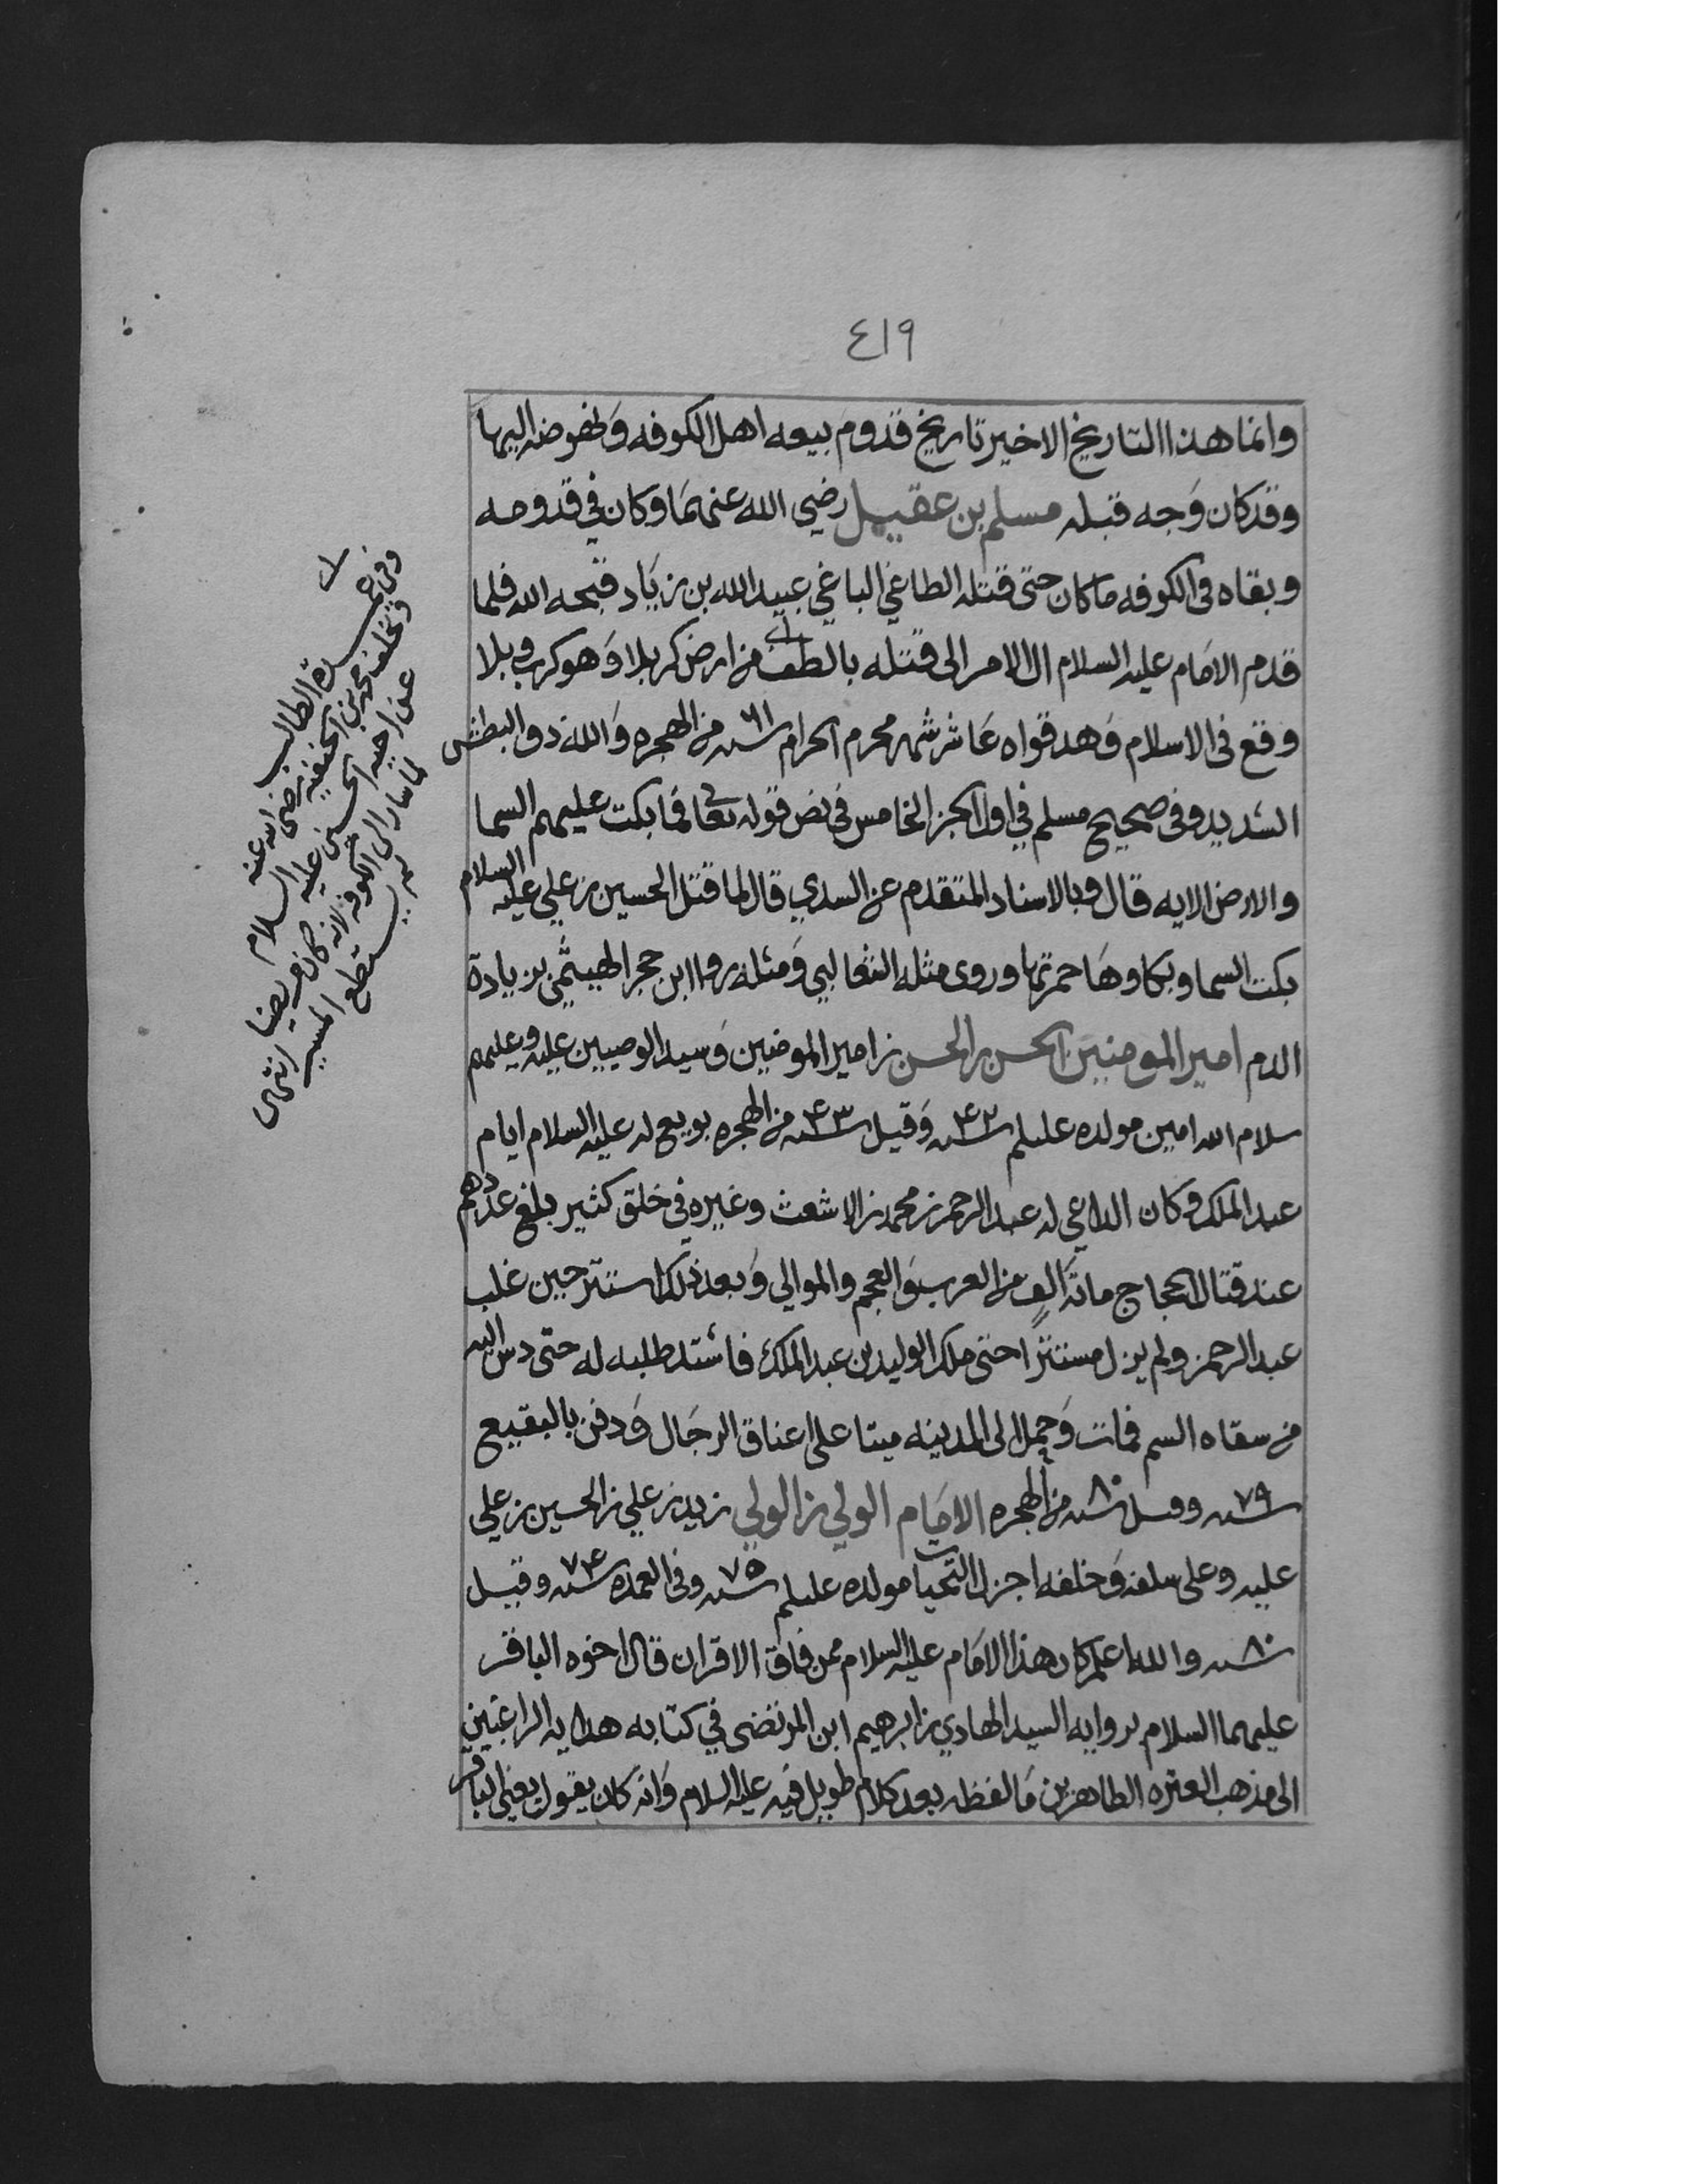 ٤١٩
وانما هذا التاريخ الاخير تاريخ قدوم بيعه اهل الكوفه ونهوضه اليها
وقد كان وجه قبله مسلم بن عقيل رضي الله عنهما وكان في قدومه
وبقاه في الكوفه ما كان حتى قتله الطاغي الباغي عبيد الله بن زياد قبحه الله فلما
قدم الامام عليه السلام ال الامر الى قتله بالطف من ارض كربلا وهو كرب وبلا
وقع في الاسلام وهد قواه عاشر شهر محرم الحرام سنه ٦١ من الهجره والله ذو البطش
الشديد وفي صحيح مسلم في اول الجز الخامس في نص قوله تعالى فما بكت عليهم السما
والارض الايه قال وبالاسناد المتقدم عن السدي قال لما قتل الحسين بن علي عليه السلام
بكت السما وبكاوها حمرتها وروى مثله الثعالبي ومثله روا ابن حجر الهيثمي بزيادة
الدم امير المومنين الحسن بن الحسن بن امير المومنين وسيد الوصيين عليه وعليهم
سلام الله امين مولده عليلم سنه ٤٢ وقيل سنه ٤٣ من الهجره بويع له عليه السلام ايام
عبد الملك وكان الداعي له عبد الرحمن بن محمد بن الاشعث وغيره في خلق كثير بلغ عددهم
عند قتال الحجاج مائة الف من العرب والعجم والموالي وبعد ذلك استتر حين غلب
عبد الرحمن ولم يزل مستترا حتى ملك الوليد بن عبد الملك فاشتد طلبه له حتى دس اليه
من سقاه السم فمات وحمل الى المدينه ميتا على اعناق الرجال ودفن بالبقيع
سنه ٧٩ وقيل سنه ٨٠ من الهجره الامام الولي بن الولي زيد بن علي بن الحسين بن علي
عليه وعلى سلفه وخلفه اجزل التحيات مولده عليلم سنه ٧٥ وفي العمده سنه ٧٤ وقيل
سنه ٨٠ والله اعلم كان هذا الامام عليه السلام ممن فاق الاقران قال اخوه الباقر
عليهما السلام برواية السيد الهادي بن ابرهيم ابن المرتضى في كتابه هدايه الراغبين
الى مذهب العتره الطاهرين ما لفظه بعد كلام طويل فيه عليه السلام وانه كان يقول يعني الباقر
وفي عمدة الطالب
وتخلف محمد بن الحنفيه رضي الله عنه
عن اخيه الحسين عليه السلام
لما سار الى الكوفه لانه كان مريضا
لم يستطع المسير انتهى